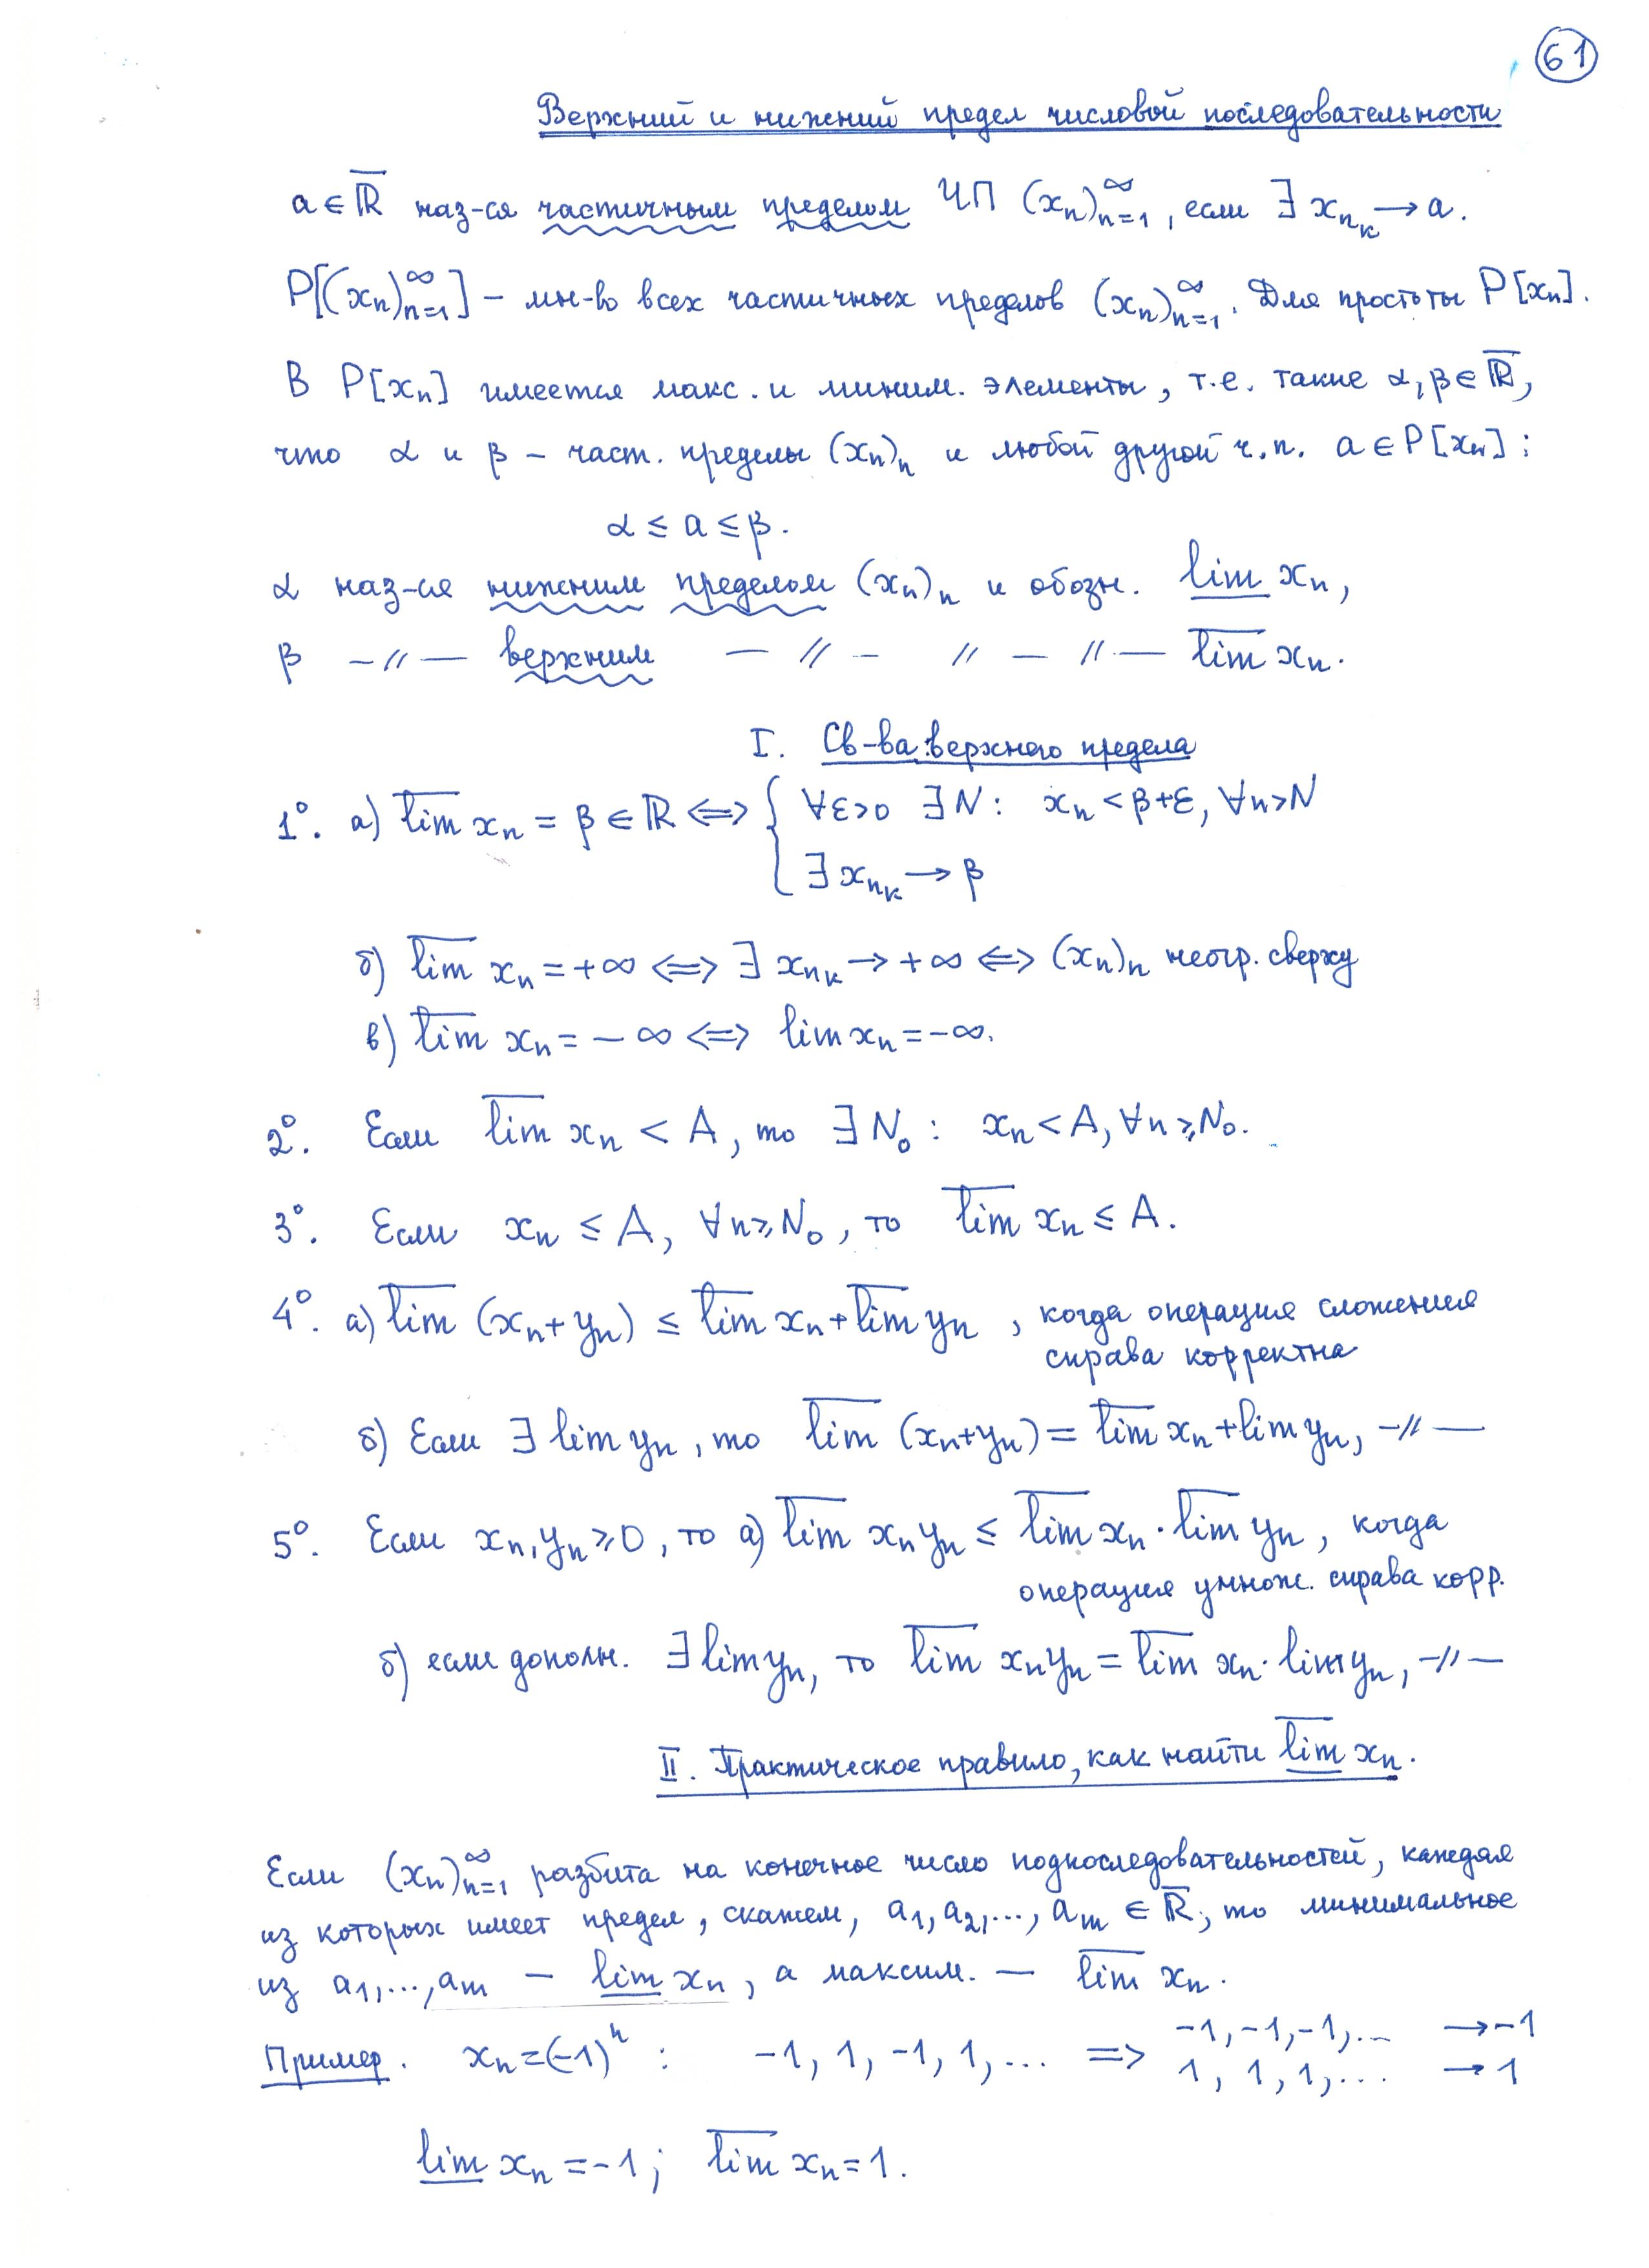 61
Верхний и нижний предел числовой последовательности
a ∈ ℝ̅ наз-ся частичным пределом ЧП (xₙ)ₙ₌₁^∞, если ∃ x_{n_k} → a.
P[(xₙ)ₙ₌₁^∞] – мн-во всех частичных пределов (xₙ)ₙ₌₁^∞. Для простоты P[xₙ].
В P[xₙ] имеется макс. и миним. элементы, т.е. такие α, β ∈ ℝ̅,
что α и β – част. пределы (xₙ)ₙ и любой другой ч.п. a ∈ P[xₙ]:
α ≤ a ≤ β.
α наз-ся нижним пределом (xₙ)ₙ и обозн. l̲i̲m̲ xₙ,
β –//— верхним — // – // — //— l̅i̅m̅ xₙ.
I. Св-ва верхнего предела
1°. а) l̅i̅m̅ xₙ = β ∈ ℝ ⟺ { ∀ε>0 ∃N: xₙ < β+ε, ∀n>N
∃ x_{n_k} → β
б) l̅i̅m̅ xₙ = +∞ ⟺ ∃ x_{n_k} → +∞ ⟺ (xₙ)ₙ неогр. сверху
в) l̅i̅m̅ xₙ = –∞ ⟺ lim xₙ = –∞.
2°. Если l̅i̅m̅ xₙ < A, то ∃ N₀: xₙ < A, ∀n ≥ N₀.
3°. Если xₙ ≤ A, ∀n ≥ N₀, то l̅i̅m̅ xₙ ≤ A.
4°. а) l̅i̅m̅ (xₙ + yₙ) ≤ l̅i̅m̅ xₙ + l̅i̅m̅ yₙ, когда операция сложения
справа корректна
б) Если ∃ lim yₙ, то l̅i̅m̅ (xₙ+yₙ) = l̅i̅m̅ xₙ + lim yₙ, –//—
5°. Если xₙ, yₙ ≥ 0, то а) l̅i̅m̅ xₙyₙ ≤ l̅i̅m̅ xₙ · l̅i̅m̅ yₙ, когда
операция умнож. справа корр.
б) если дополн. ∃ lim yₙ, то l̅i̅m̅ xₙyₙ = l̅i̅m̅ xₙ · lim yₙ, –//—
II. Практическое правило, как найти l̲̅i̲̅m̲̅ xₙ.
Если (xₙ)ₙ₌₁^∞ разбита на конечное число подпоследовательностей, каждая
из которых имеет предел, скажем, a₁, a₂, ..., aₘ ∈ ℝ̅, то минимальное
из a₁, ..., aₘ – l̲i̲m̲ xₙ, а максим. — l̅i̅m̅ xₙ.
Пример. xₙ = (–1)ⁿ: –1, 1, –1, 1, ... ⟹ –1, –1, –1, ... → –1
1, 1, 1, ... → 1
l̲i̲m̲ xₙ = –1; l̅i̅m̅ xₙ = 1.